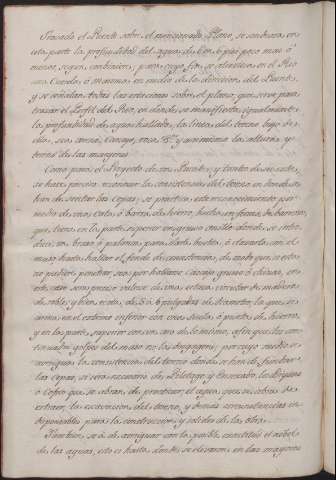 Trazado el Puente sobre el mencionado Plano, se sondeara en
esta parte la profundidad del agua, de 6 en 6 pies poco mas ó
menos, segun combiniere, para cuyo fin se atiranta en el Rio
una Cuerda, ó maroma, en medio de la direccion del Puente,
y se señalan todas las estaciones sobre el plano, que sirve para
trazar el Perfil del Rio, en donde se manifiesta igualmente
la profundidad de aguas hallada, la linea del terreno bajo de
ella, sea arena, Cascajo, roca &ª y asimismo la altura y
terreno de las margenes
Como para el Proyecto de un Puente, y tanteo de su coste,
se hace preciso reconocer la consistencia del terreno en donde se
han de sentar las Cepas; se practica este reconocimiento por
medio de una Cata, ó barra de hierro, hecha en forma de barreno,
que tiene en la parte superior un grueso anillo donde se intro-
duce un brazo ó palanca, para darle bueltas, ó clavarla con el
mazo hasta hallar el fondo de consistencia; de modo que si esta
no pudiere penetrar, sea por hallarse Cascajo grueso ó chinas, en
este caso sera preciso valerse de una estaca, circular de madera
de roble, y bien recta, de 5 á 6 pulgadas de diametro, la que se
arma en el extremo inferior con una Suela, ó punta de hierro,
y en la parte superior con un aro de lo mismo, afin que los con-
tinuados golpes del mazo no la desgajen; por cuyo medio se
averigua la consistencia del terreno donde se han de fundar
las cepas, si sera necesario de Pilotage y Enrexado, la Maquina
ó Cofre que se abran de practicar; el agua que se abra de
extraer, la excavacion del terreno, y demas circunstancias in-
dispensables para la construccion y solidez de la obra.
Tambien se á de averiguar con la posible exactitud el nibel
de las aguas, esto es hasta donde se elevaron en las mayores